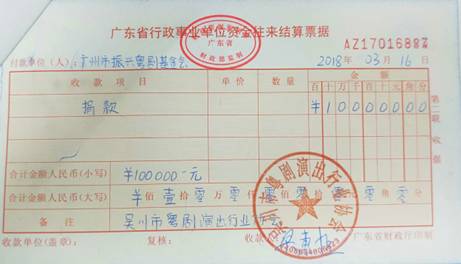 广东省行政事业单位资金往来结算票据
广东省
财政部监制
AZ1701688
付款单位(人):广州市振兴粤剧基金会
2018 年 03 月 16 日
收款项目 单价 数量 金额
百 十 万 千 百 十 元 角 分
捐款 ¥ 1 0 0 0 0 0 0 0
第二联 收据
合计金额人民币(小写) ¥100000.元
合计金额人民币(大写) ¥ 佰 壹 拾 零 万 零 仟 零 佰 零 拾 零 元 零 角 零 分
备注 吴川市粤剧演出行业协会
吴川市粤剧演出行业协会
收款单位(盖章): 复核: 收款人: 广东省财政厅印制